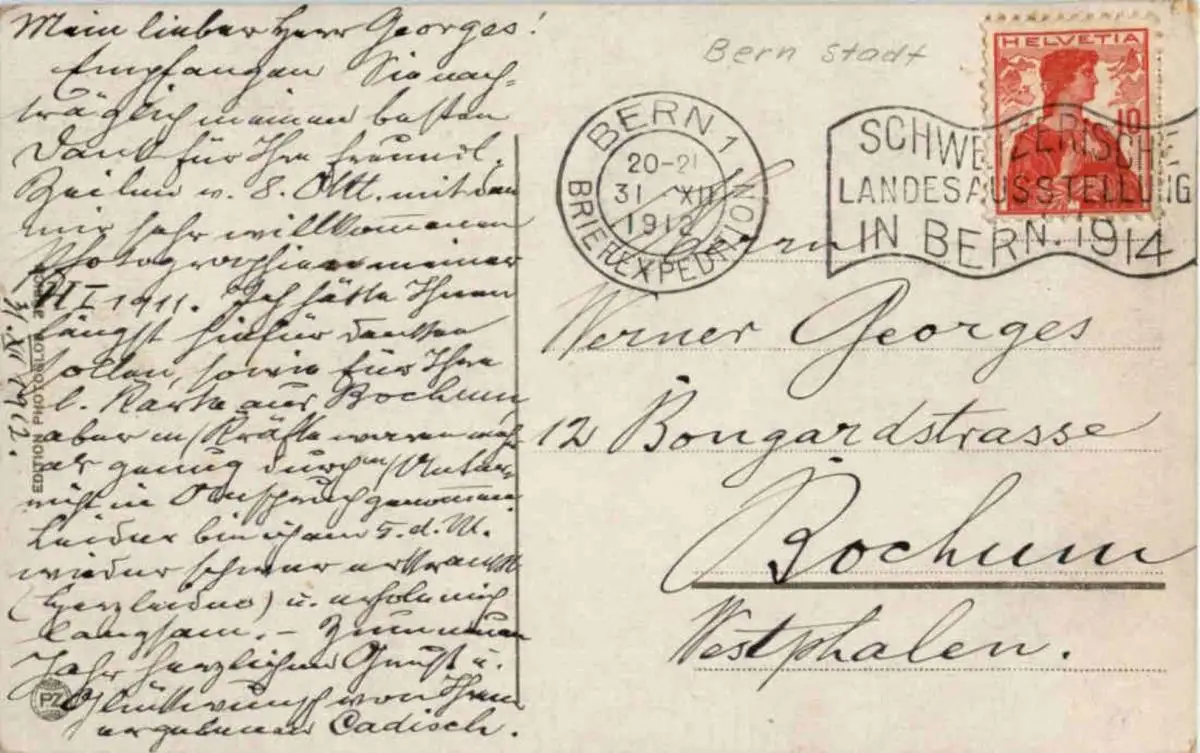 Mein lieber Herr Georges!
Empfangen Sie nach-
träglich meinen besten
Dank für Ihre freundl.
Zeilen v. 8. Okt. mit den
mir sehr willkommenen
Photographien meiner
1911. Ich hätte Ihnen
längst hiefür danken
sollen, sowie für Ihre
l. Karte aus Bochum,
aber m/Kräfte waren mehr
als genug durch m/
in Anspruch genommen.
Leider bin ich am 5. d. M.
wieder schwer erkrankt
(Herzleiden) u. erhole mich
langsam. – Zum neuen
Jahr herzlichen Gruß u.
Glückwunsch von Ihrem
ergebenen Cadisch.
31. XII 1912.
EDITION PHOTOGLOB
PZ
Bern Stadt
BERN 1
20-21
31 XII
1912
BRIEFEXPEDITION
SCHWEIZERISCHE
LANDESAUSSTELLUNG
IN BERN. 1914
HELVETIA
10
Herrn
Werner Georges
12 Bongardstrasse
Bochum
Westphalen.